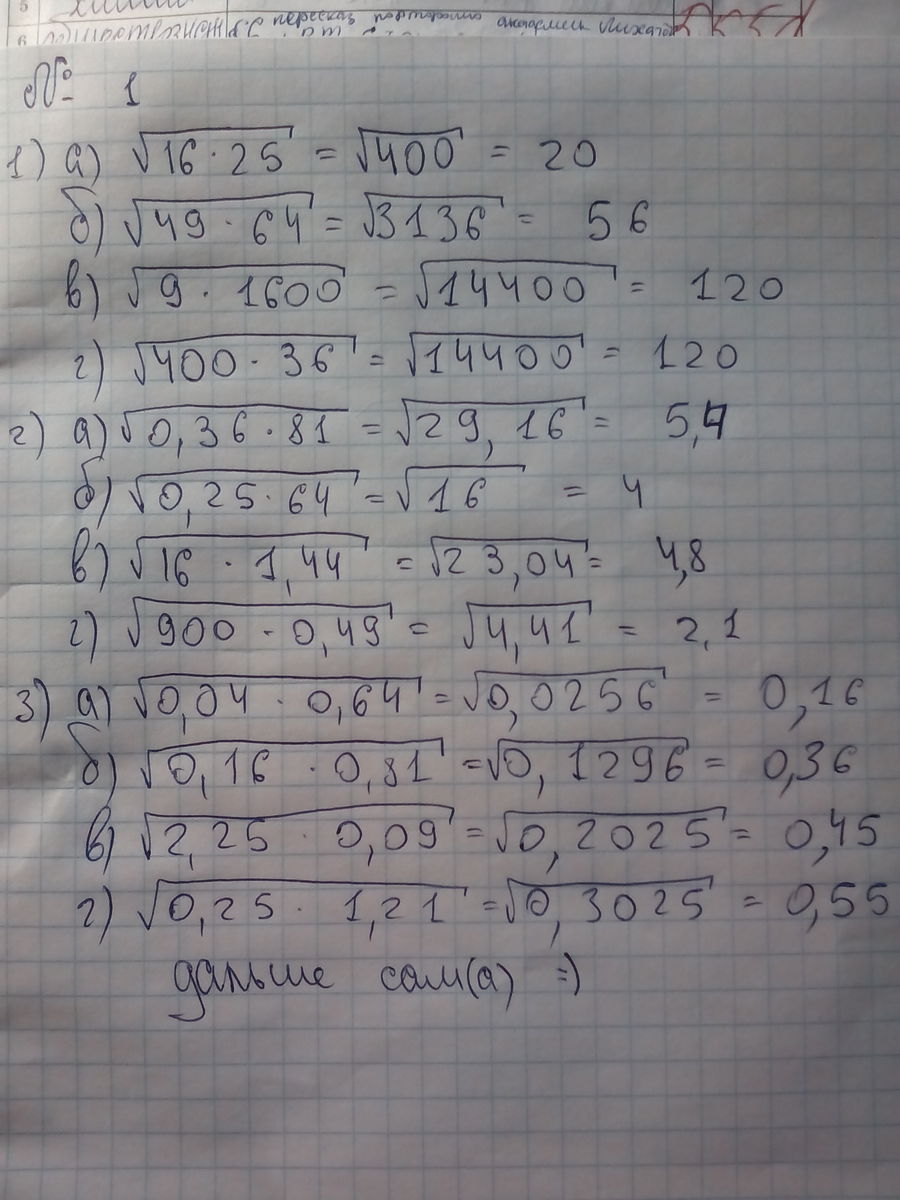 5 химия
6 5.С пересказ повторить академик Лихачов
№ 1
1) а) √16·25 = √400 = 20
б) √49·64 = √3136 = 56
в) √9·1600 = √14400 = 120
г) √400·36 = √14400 = 120
2) а) √0,36·81 = √29,16 = 5,4
б) √0,25·64 = √16 = 4
в) √16·1,44 = √23,04 = 4,8
г) √900·0,49 = √4,41 = 2,1
3) а) √0,04·0,64 = √0,0256 = 0,16
б) √0,16·0,81 = √0,1296 = 0,36
в) √2,25·0,09 = √0,2025 = 0,45
г) √0,25·1,21 = √0,3025 = 0,55
дальше сам(а) =)